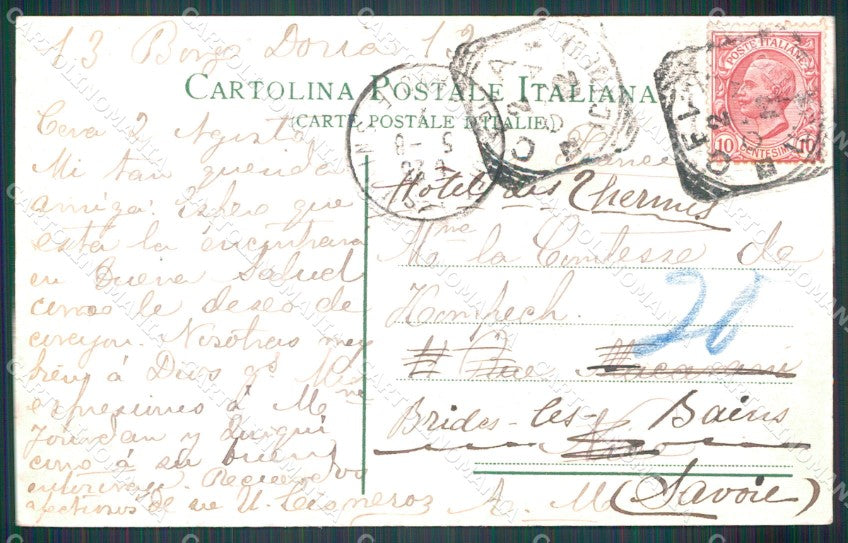 13 Borgo Doria 13
CARTOLINA POSTALE ITALIANA
(CARTE POSTALE D'ITALIE)
POSTE ITALIANE
10 CENTESIMI 10
Ceva 2 Agosto
Mi tan querida
amiga: Espero que
esta la encontrara
en buena salud
como le deseo de
corazon. Nosotras muy
bien á Dios gs.
expresiones á Mme
Jourdan y Luigui
como á su buen
Recuerdos
afectuosos de su U. Cisneros
France
Hotel des Thermes
Mme la Comtesse de
Kompech
# Rue
Brides-les-Bains
A. M. (Savoie)
20
CEVA
CARTOLINOMANIA